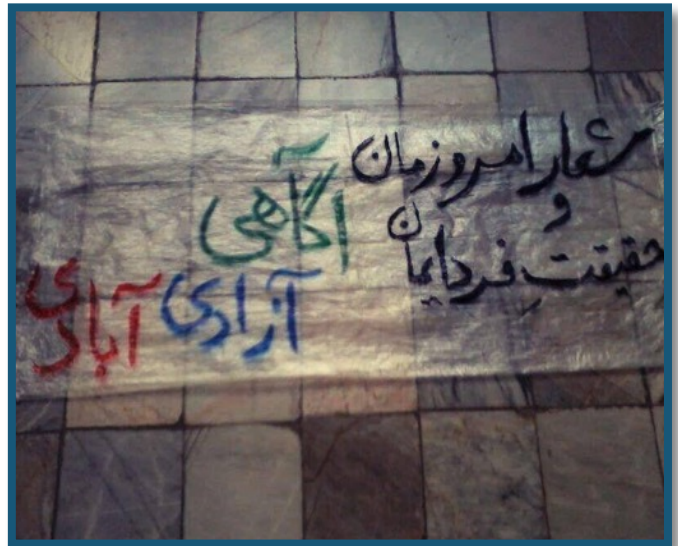 شعار امروزمان
و
حقیقتِ فردایمان
آگاهی
آزادی
آبادی